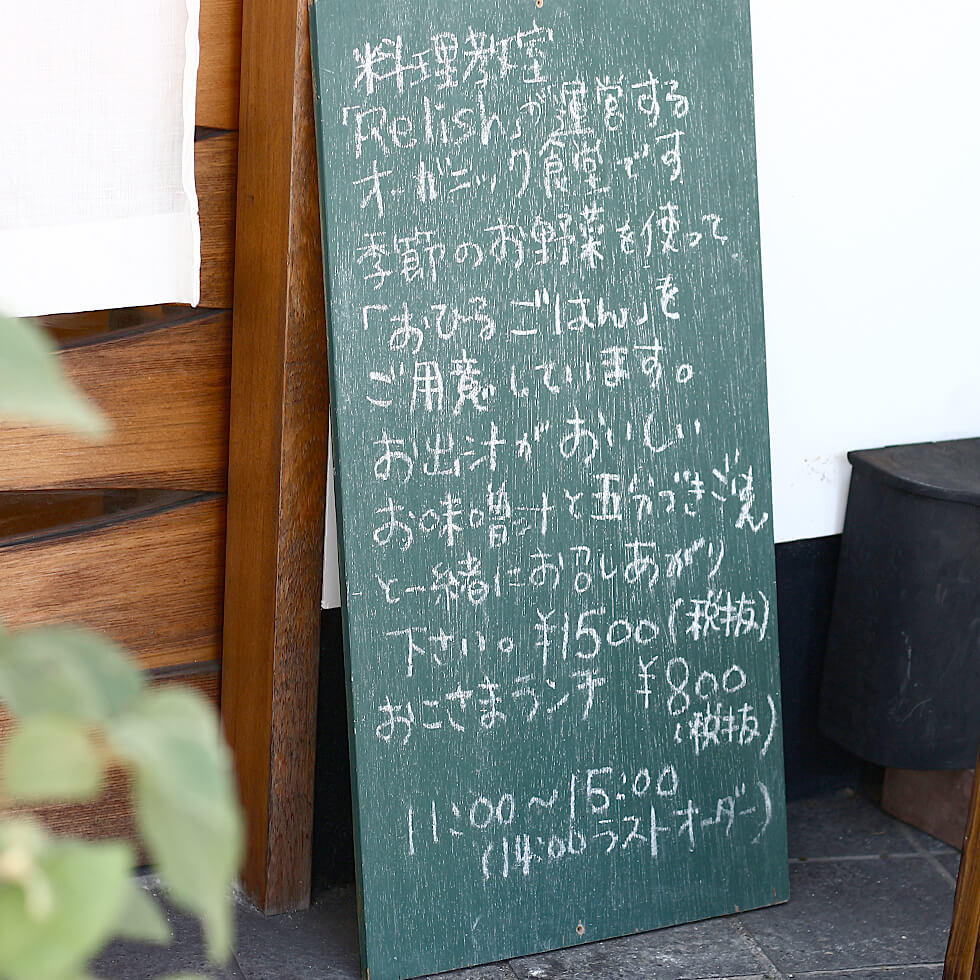 料理教室
「Relish」が運営する
オーガニック食堂です
季節のお野菜を使って
「おひるごはん」を
ご用意しています。
お出汁がおいしい
お味噌汁と五分づきごはん
と一緒にお召しあがり
下さい。¥1500(税抜)
おこさまランチ ¥800
(税抜)
11:00~15:00
(14:00ラストオーダー)